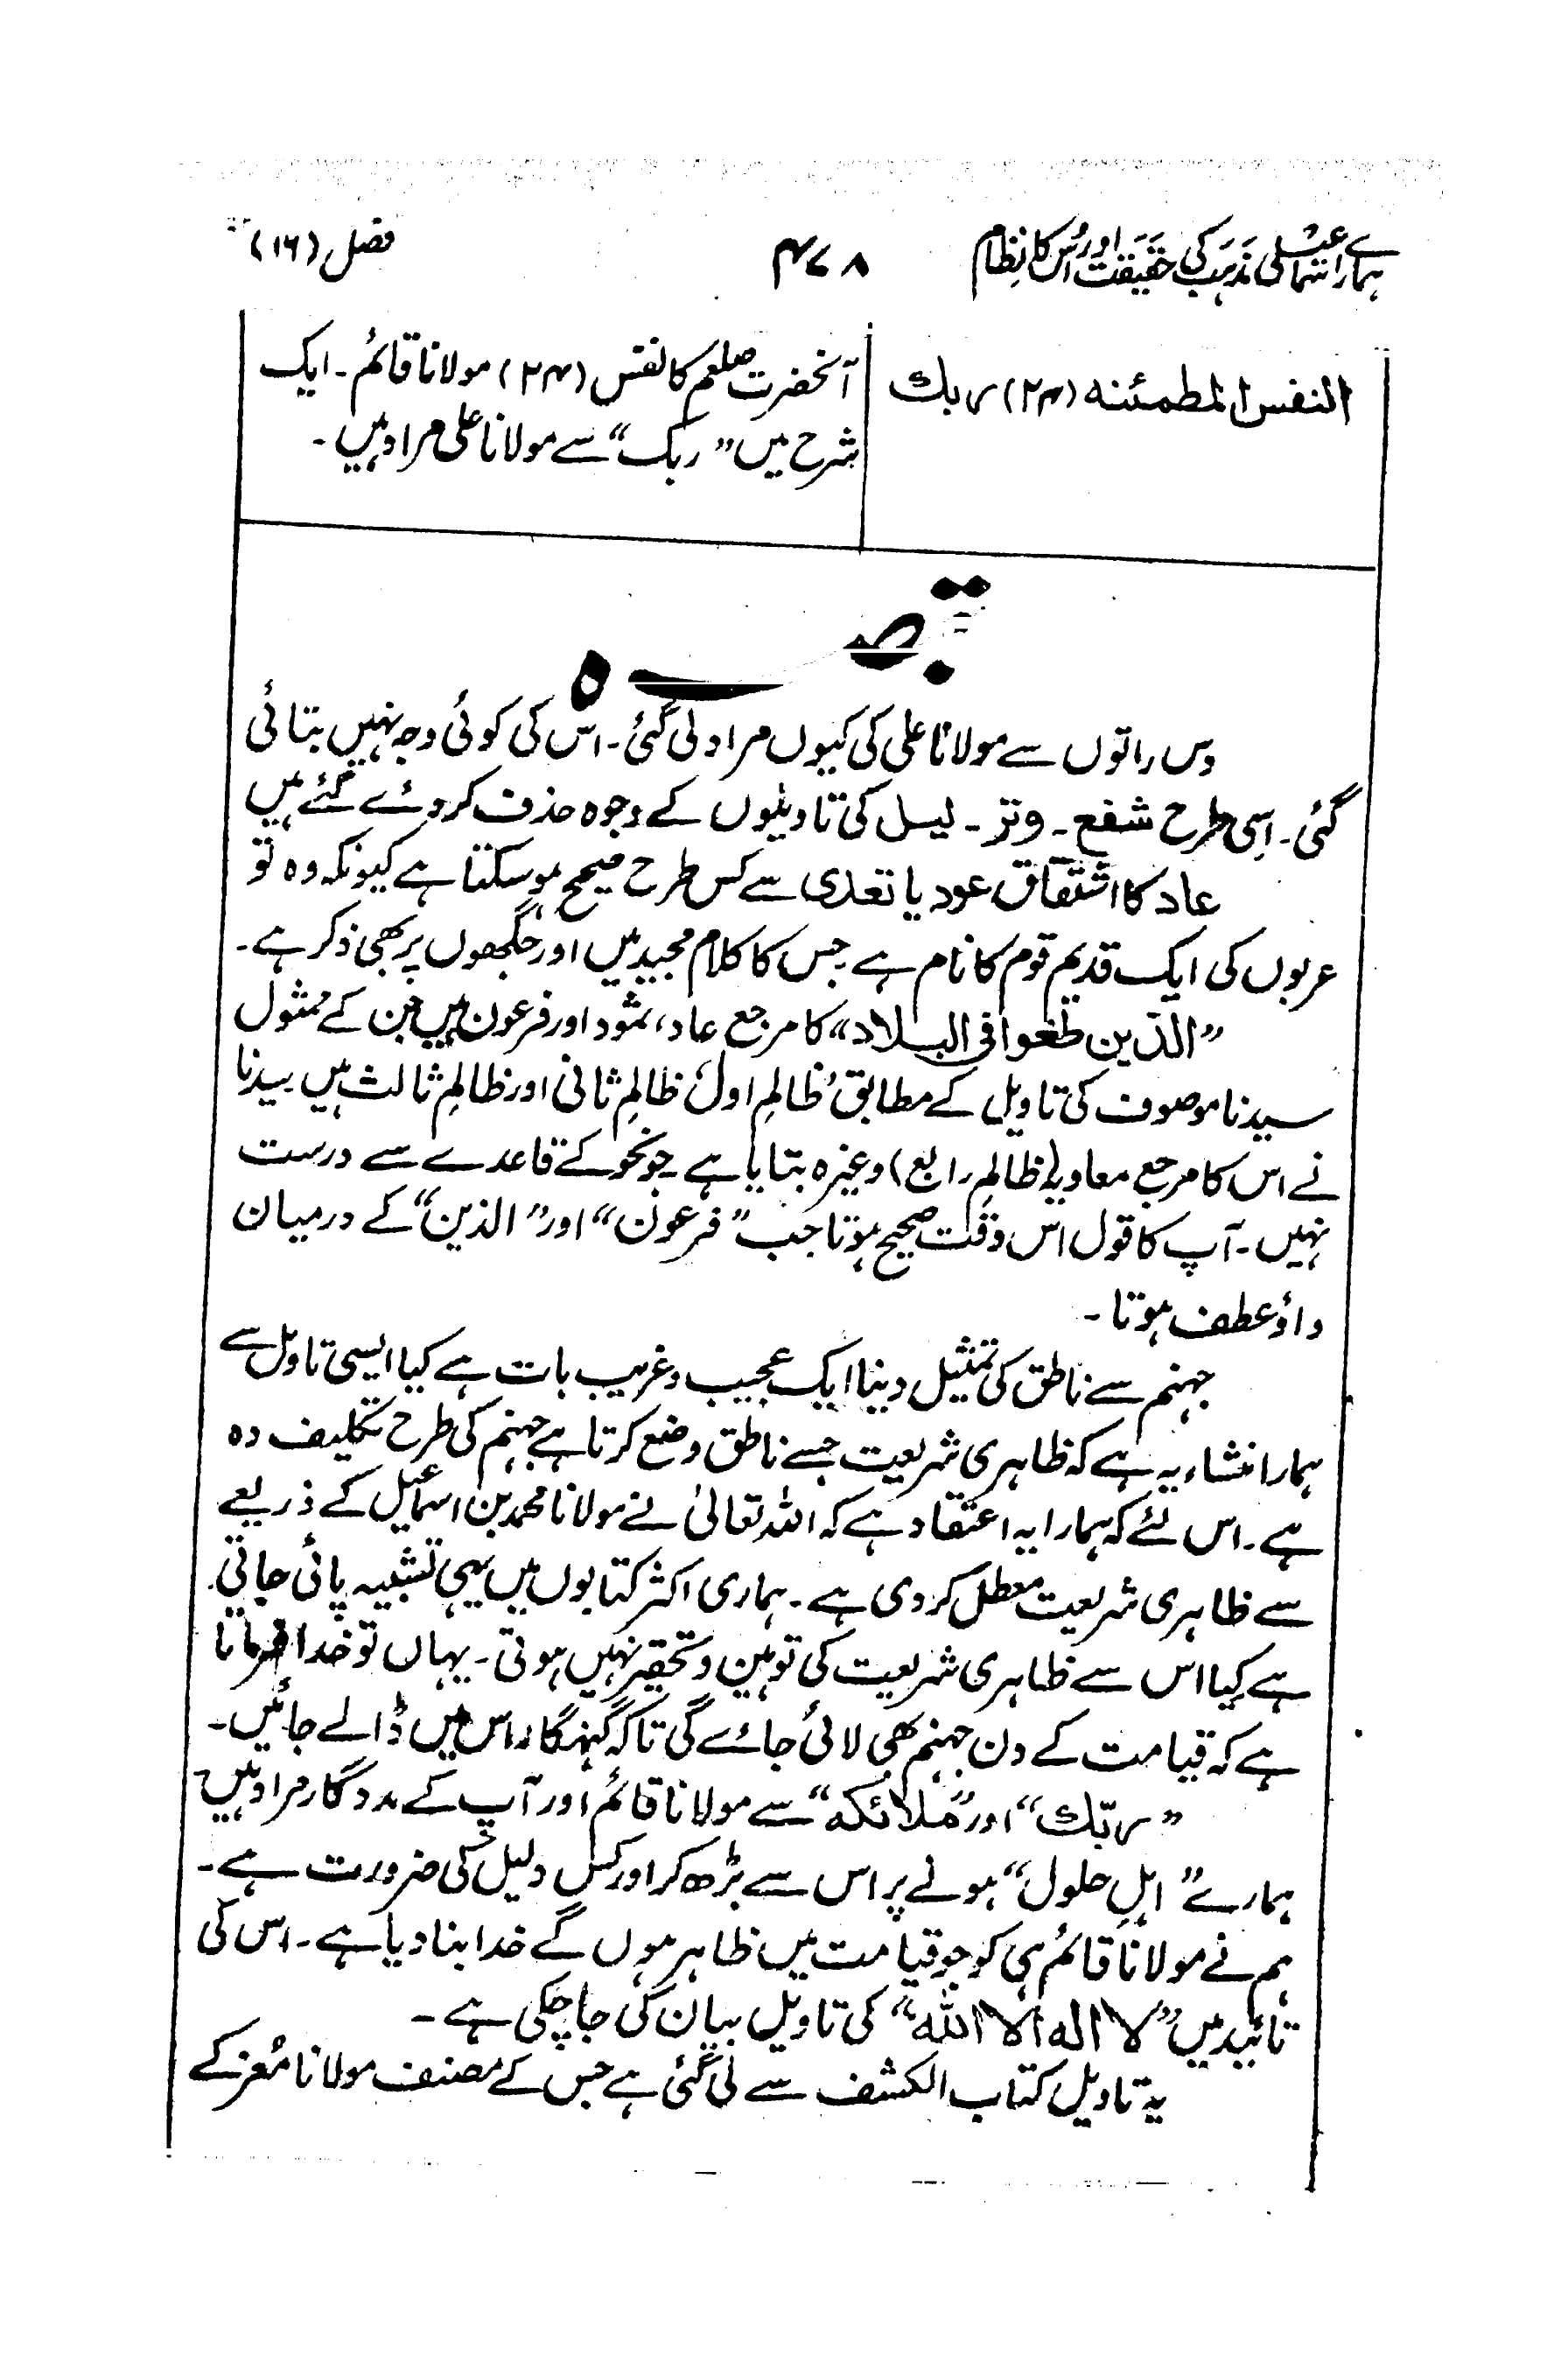 ہمارے اسماعیلی مذہب کی حقیقت اور اُس کا نظام ۴۷۸ فصل (۱۶)
النفس المطمئنه (۲۴) ربك
آنحضرت صلعم کا نفس (۲۴) مولانا قائم ۔ ایک
شرح میں ”ربک“ سے مولانا علی مراد ہیں ۔
تبصرہ
دس راتوں سے مولانا علی کی کیوں مراد لی گئی ۔ اس کی کوئی وجہ نہیں بتائی
گئی ۔ اِسی طرح شفع ۔ وتر ۔ لیل کی تاویلوں کے وجوہ حذف کر دئے گئے ہیں
عاد کا اشتقاق عود یا تعدی سے کس طرح صحیح ہو سکتا ہے کیونکہ وہ تو
عربوں کی ایک قدیم قوم کا نام ہے جس کا کلام مجید میں اور جگہوں پر بھی ذکر ہے ۔
”الذین طغوا فی البلاد“ کا مرجع عاد، ثمود اور فرعون ہیں جن کے ممثول
سیدنا موصوف کی تاویل کے مطابق ظالمِ اول ظالمِ ثانی اور ظالمِ ثالث ہیں سیدنا
نے اس کا مرجع معاویہ (ظالمِ رابع) وغیرہ بتایا ہے جو نحو کے قاعدے سے درست
نہیں ۔ آپ کا قول اس وقت صحیح ہوتا جب ”فرعون“ اور ”الذین“ کے درمیان
واؤ عطف ہوتا ۔
جہنم سے ناطق کی تمثیل دینا ایک عجیب و غریب بات ہے کیا ایسی تاویل سے
ہمارا منشاء یہ ہے کہ ظاہری شریعت جسے ناطق وضع کرتا ہے جہنم کی طرح تکلیف دہ
ہے ۔ اس لئے کہ ہمارا یہ اعتقاد ہے کہ اللہ تعالیٰ نے مولانا محمد بن اسماعیل کے ذریعے
سے ظاہری شریعت معطل کر دی ہے ۔ ہماری اکثر کتابوں میں یہی تشبیہ پائی جاتی
ہے کیا اس سے ظاہری شریعت کی توہین و تحقیر نہیں ہوتی ۔ یہاں تو خدا فرماتا
ہے کہ قیامت کے دن جہنم بھی لائی جائے گی تاکہ گنہگار اس میں ڈالے جائیں ۔
”ربّك“ اور ”ملائکه“ سے مولانا قائم اور آپ کے مددگار مراد ہیں
ہمارے ”اہلِ حلول“ ہونے پر اس سے بڑھ کر اور کس دلیل کی ضرورت ہے ۔
ہم نے مولانا قائم ہی کو جو قیامت میں ظاہر ہوں گے خدا بنا دیا ہے ۔ اس کی
تائید میں ”لا اله الا الله“ کی تاویل بیان کی جا چکی ہے ۔
یہ تاویل کتاب الکشف سے لی گئی ہے جس کے مصنف مولانا مُعز کے